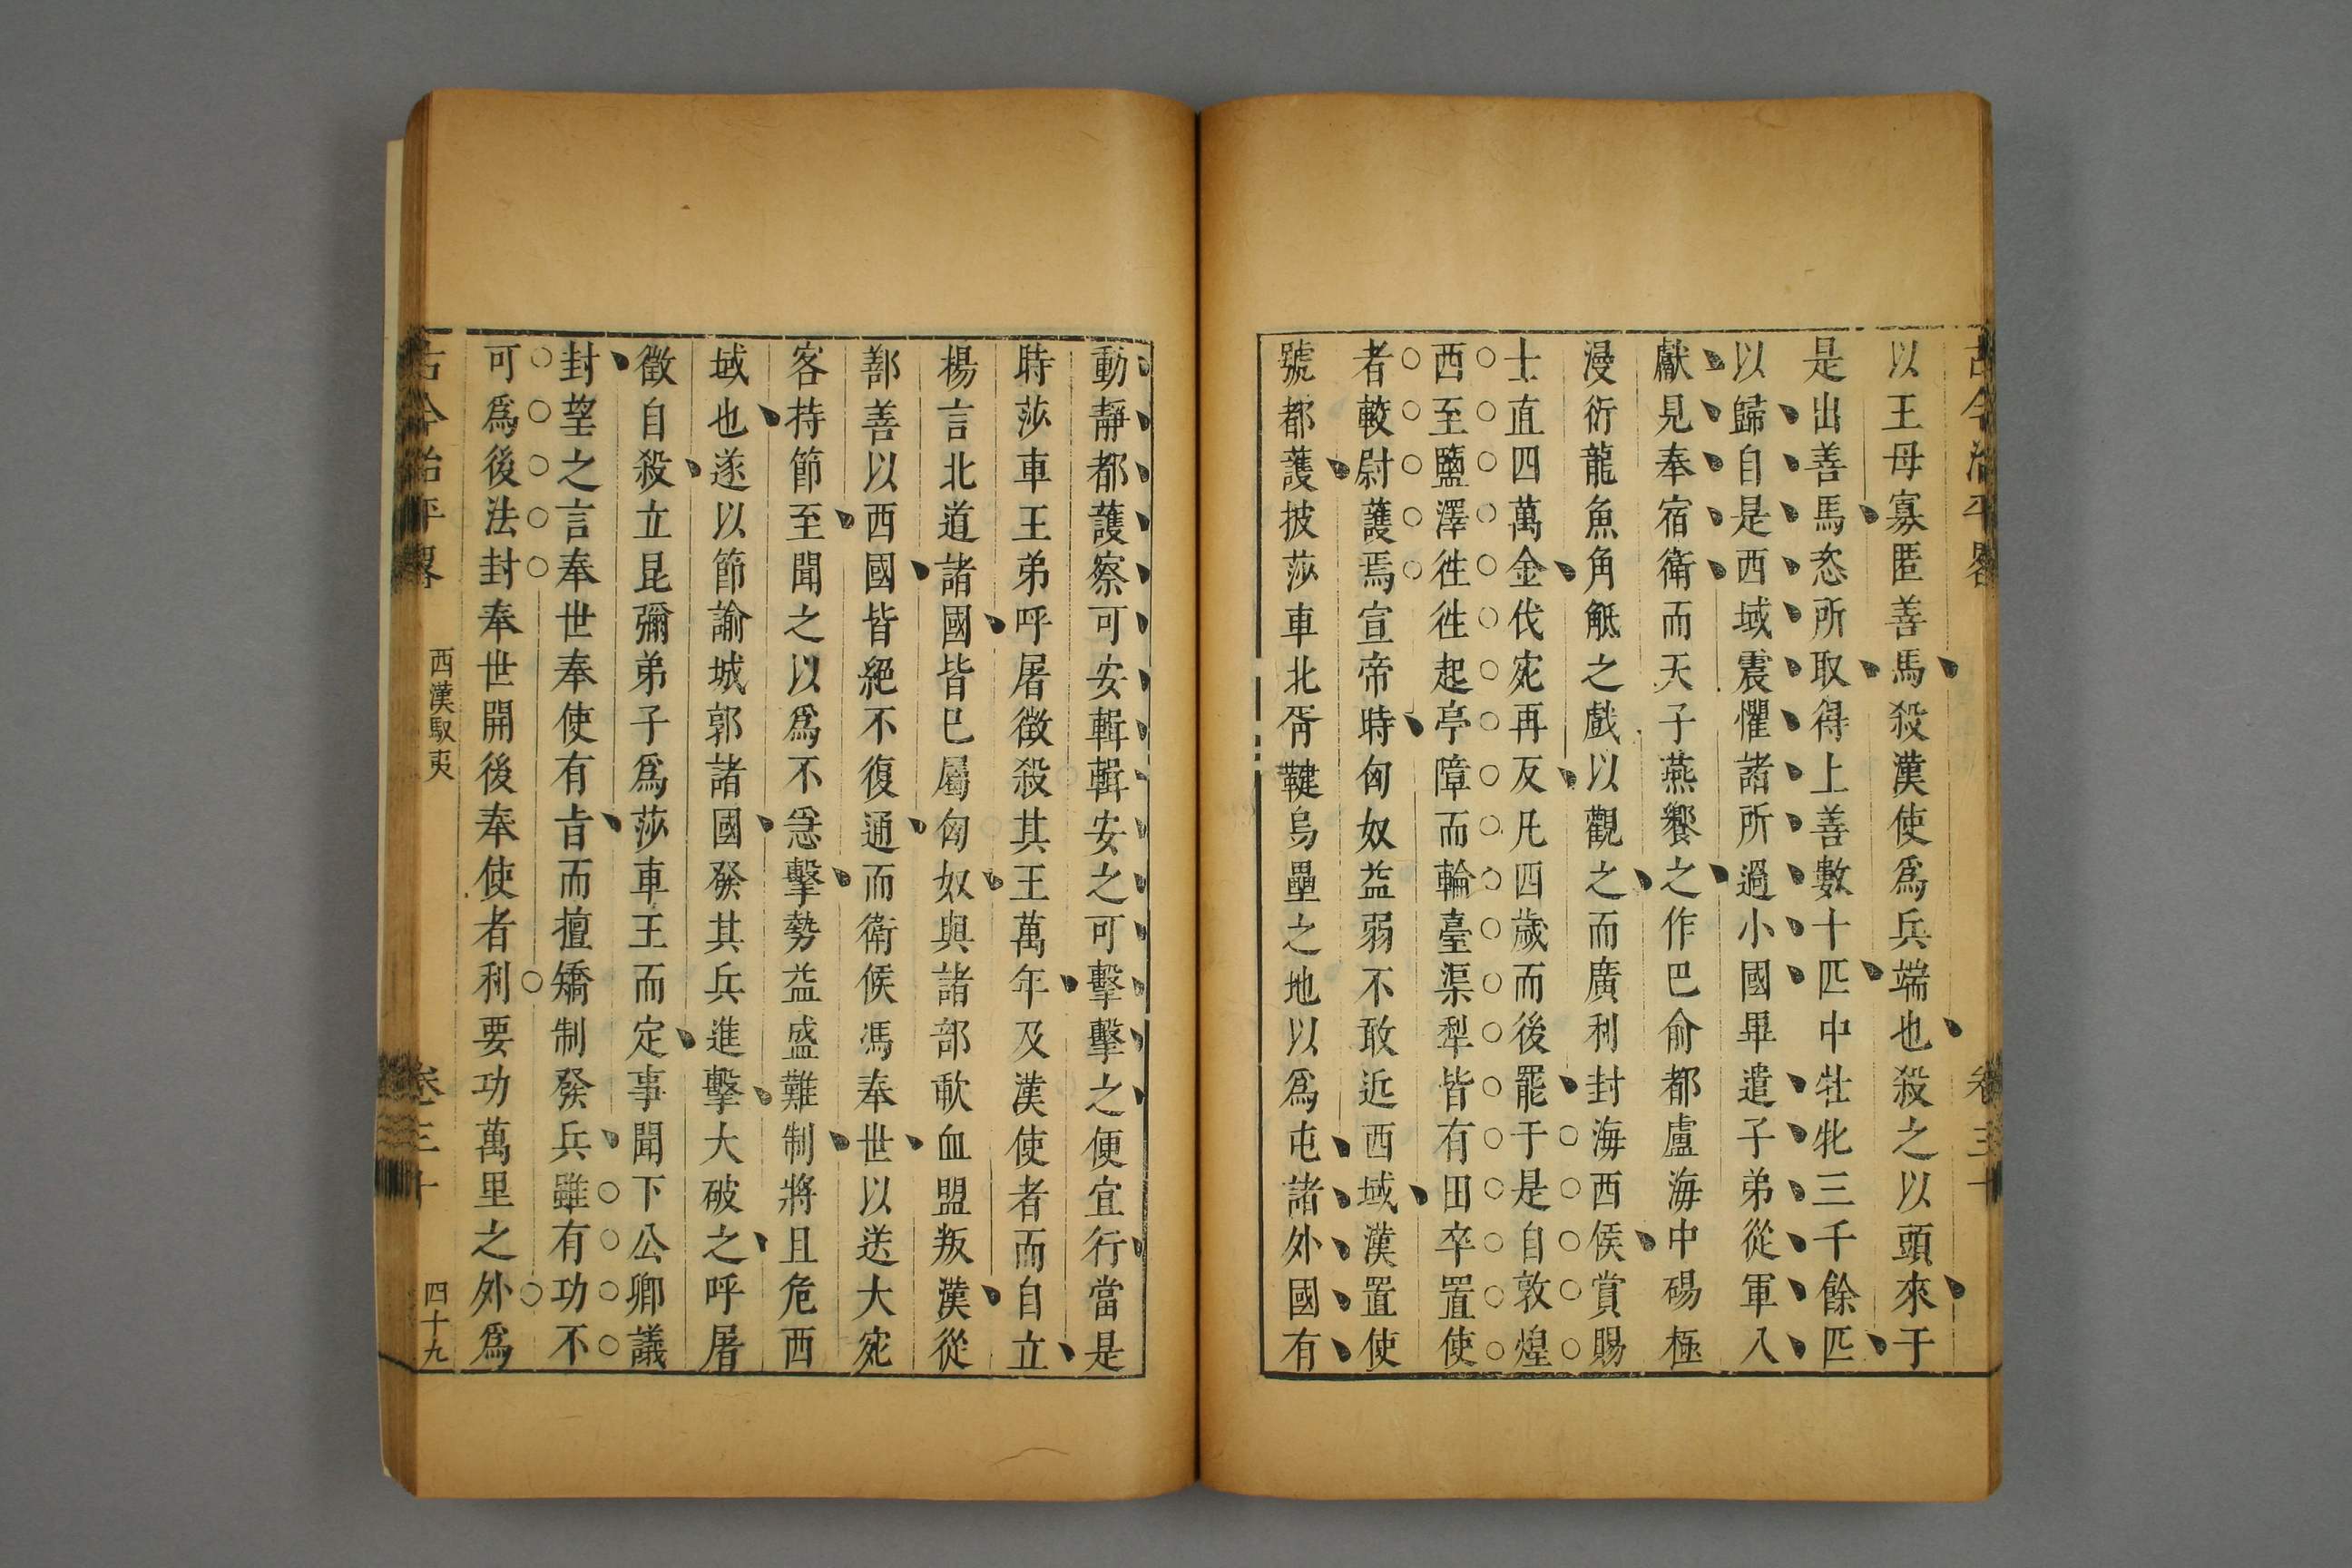 古今治平畧
卷三十
以王母寡匿善馬殺漢使爲兵端也殺之以頭來于
是出善馬恣所取得上善數十匹中牡牝三千餘匹
以歸自是西域震懼諸所過小國畢遣子弟從軍入
獻見奉宿衛而天子燕饗之作巴俞都盧海中碭極
漫衍龍魚角觝之戲以觀之而廣利封海西侯賞賜
士直四萬金伐宛再反凡四歲而後罷于是自敦煌
西至鹽澤徃徃起亭障而輪臺渠犁皆有田卒置使
者較尉護焉宣帝時匈奴益弱不敢近西域漢置使
號都護披莎車北胥鞬烏壘之地以爲屯諸外國有
動靜都護察可安輯輯安之可擊擊之便宜行當是
時莎車王弟呼屠徵殺其王萬年及漢使者而自立
楊言北道諸國皆巳屬匈奴與諸部歃血盟叛漢從
鄯善以西國皆絕不復通而衛候馮奉世以送大宛
客持節至聞之以爲不急擊勢益盛難制將且危西
域也遂以節諭城郭諸國發其兵進擊大破之呼屠
徵自殺立昆彌弟子爲莎車王而定事聞下公卿議
封望之言奉世奉使有㫖而擅矯制發兵雖有功不
可爲後法封奉世開後奉使者利要功萬里之外爲
古今治平畧
西漢馭夷
卷三十
四十九